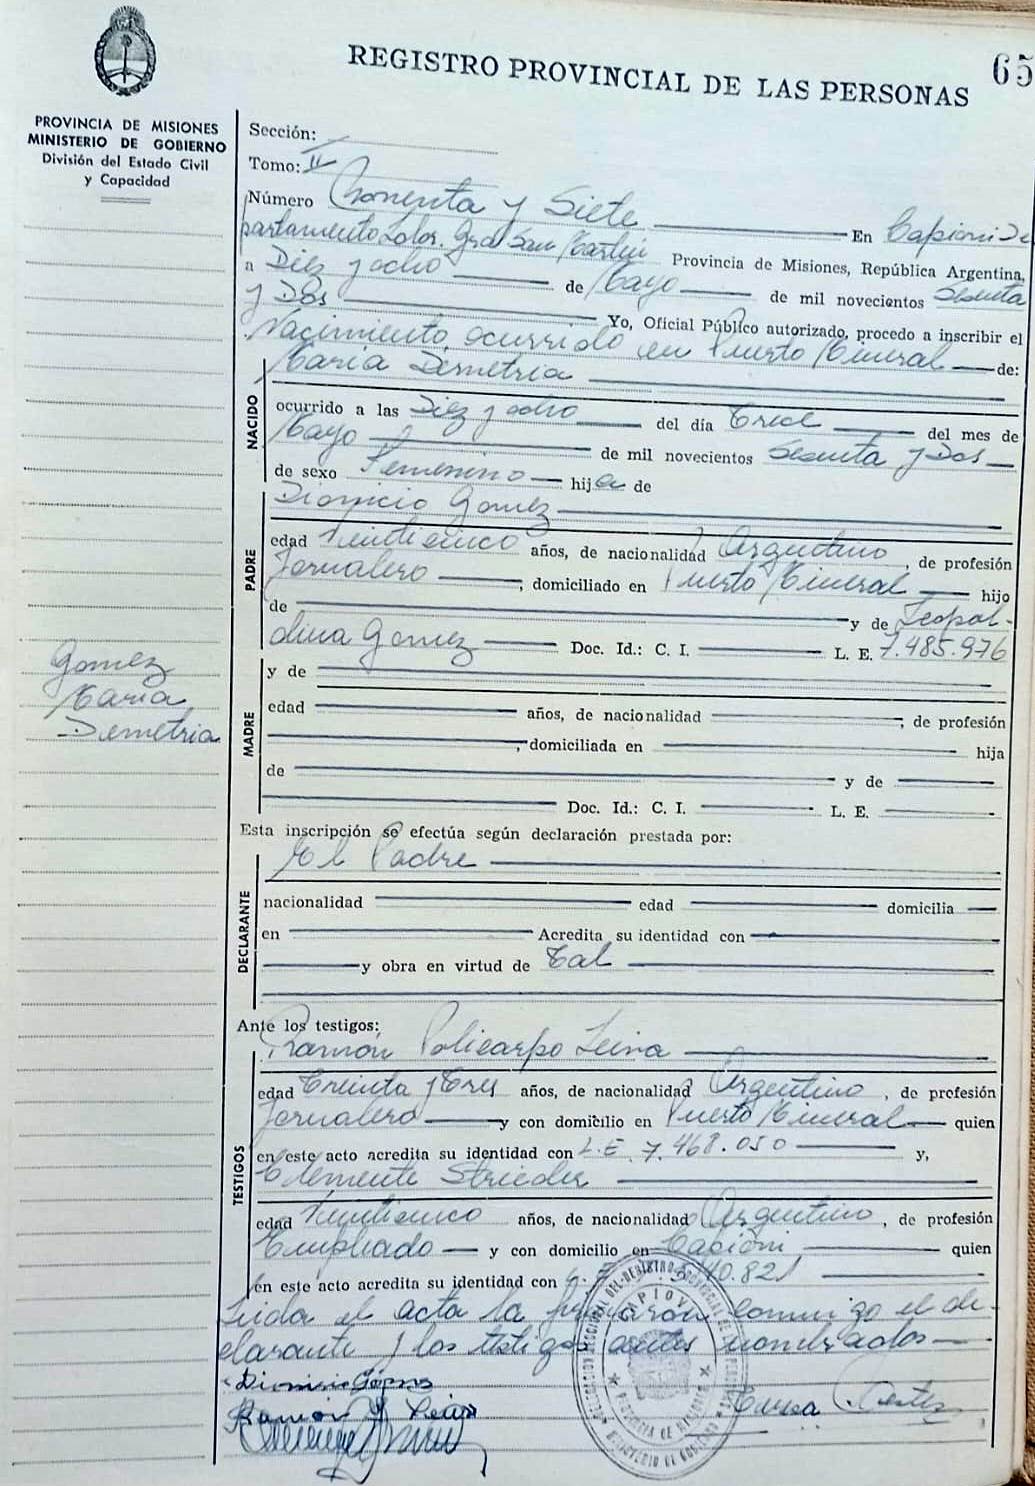 65
REGISTRO PROVINCIAL DE LAS PERSONAS
PROVINCIA DE MISIONES
MINISTERIO DE GOBIERNO
División del Estado Civil
y Capacidad
Sección:
Tomo: II
Número Noventa y Siete En Capioví De
partamento Ldor. Gral San Martín Provincia de Misiones, República Argentina,
a Diez y ocho de Mayo de mil novecientos Sesenta
y Dos Yo, Oficial Público autorizado, procedo a inscribir el
Nacimiento ocurrido en Puerto Mineral de:
NACIDO
María Demetria
ocurrido a las Diez y ocho del día Trece del mes de
Mayo de mil novecientos Sesenta y Dos
de sexo Femenino hija de
PADRE
Dionicio Gomez
edad Veinticinco años, de nacionalidad Argentino, de profesión
Jornalero, domiciliado en Puerto Mineral hijo
de y de Leopol-
dina Gomez Doc. Id.: C. I. L. E. 7.485.976
Gomez
María
Demetria
MADRE
y de
edad años, de nacionalidad, de profesión
, domiciliada en hija
de y de
Doc. Id.: C. I. L. E.
Esta inscripción se efectúa según declaración prestada por:
DECLARANTE
El Padre
nacionalidad edad domicilia
en Acredita su identidad con
y obra en virtud de Tal
Ante los testigos:
TESTIGOS
Ramón Policarpo Leiva
edad Treinta y Tres años, de nacionalidad Argentino, de profesión
Jornalero y con domicilio en Puerto Mineral quien
en este acto acredita su identidad con L.E. 7.468.050 y,
Clemente Strieder
edad Veinticinco años, de nacionalidad Argentino, de profesión
Empleado y con domicilio en Capioví, quien
en este acto acredita su identidad con
Leida el acta la firmaron conmigo el de-
clarante y los testigos antes nombrados
Dionicio Gómez
Ramón Leiva
CAPIOVI
PROVINCIA DE MISIONES
MINISTERIO DE GOBIERNO